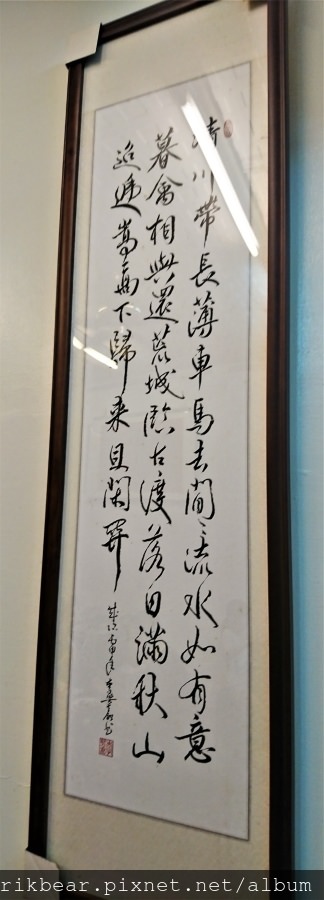 清川帶長薄車馬去閒々流水如有意
暮禽相與還荒城臨古渡落日滿秋山
迢遞嵩高下歸來且閉關
歲次
rikbear.pixnet.net/album